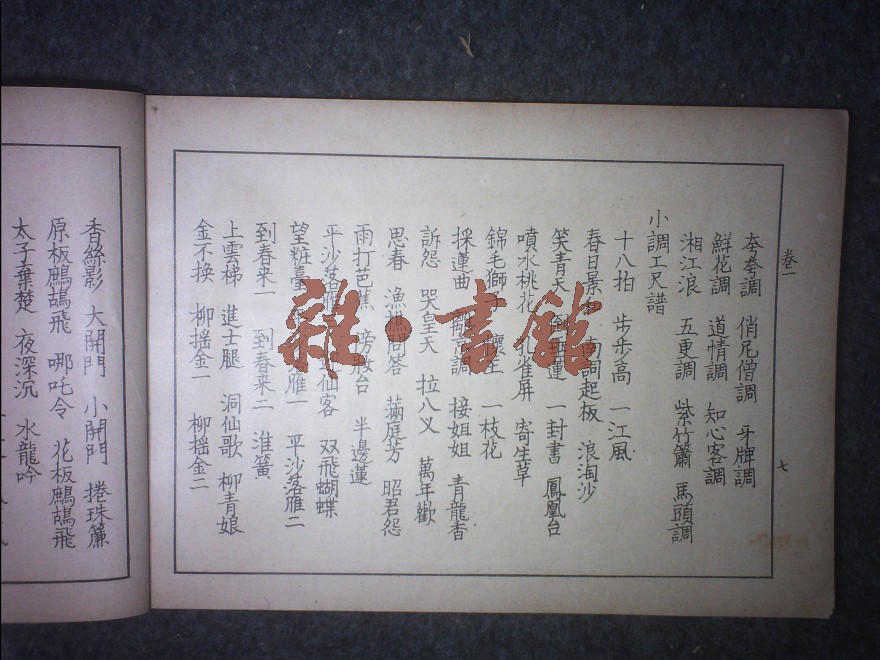 卷一
七
夲夲調 俏尼僧調 牙牌調
鮮花調 道情調 知心客調
湘江浪 五更調 紫竹簫 馬頭調
小調工尺譜
十八拍 步步高 一江風
春日景 南詞起板 浪淘沙
笑青天 一封書 鳳凰台
噴水桃花 孔雀屏 寄生草
錦毛獅子 一枝花
採蓮曲 調 接姐姐 青龍香
訴怨 哭皇天 拉八义 萬年歡
思春 漁樵問答 滿庭芳 昭君怨
雨打芭蕉 傍妝台 半邊蓮
平沙落雁 仙客 双飛蝴蝶
望粧臺 雁一 平沙落雁二
到春来一 到春来二 淮簧
上雲梯 進士腿 洞仙歌 柳青娘
金不換 柳摇金一 柳摇金二
香絲影 大開門 小開門 捲珠簾
原板鷓鴣飛 哪吒令 花板鷓鴣飛
太子棄楚 夜深沉 水龍吟
雜·書館